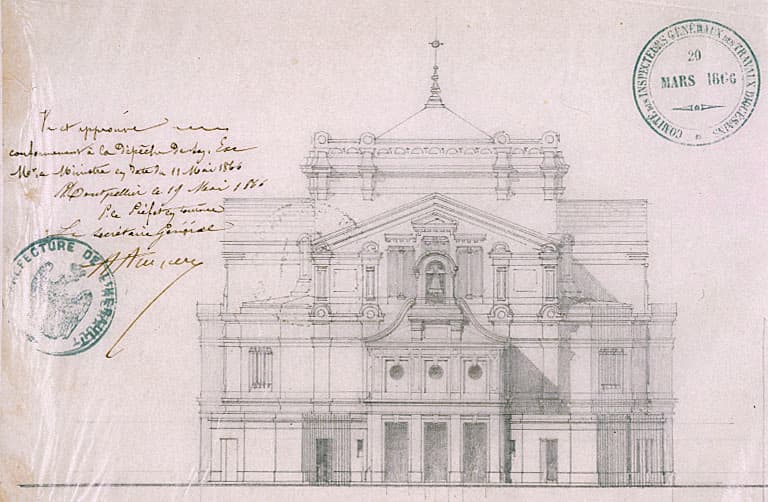 Vu et approuvé
conformément à la dépêche de Son Exc
Mr le Ministre en date du 11 Mai 1866
Montpellier le 19 Mai 1866
P. le Préfet en tournée
Le Secrétaire Général
PRÉFECTURE DE L'HÉRAULT
COMITÉ DES INSPECTEURS GÉNÉRAUX DES TRAVAUX DIOCÉSAINS
29
MARS 1866